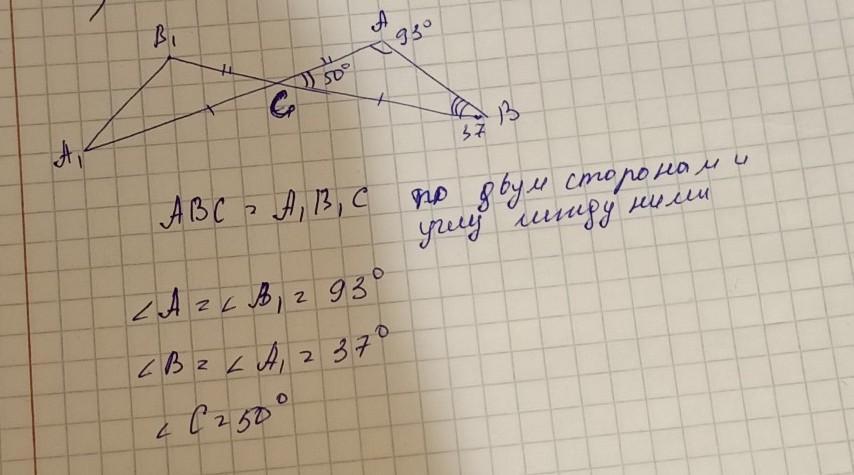 B₁
A
93°
50°
C
A₁
37
B
ABC = A₁B₁C по двум сторонам и
углу между ними
∠A = ∠B₁ = 93°
∠B = ∠A₁ = 37°
∠C = 50°